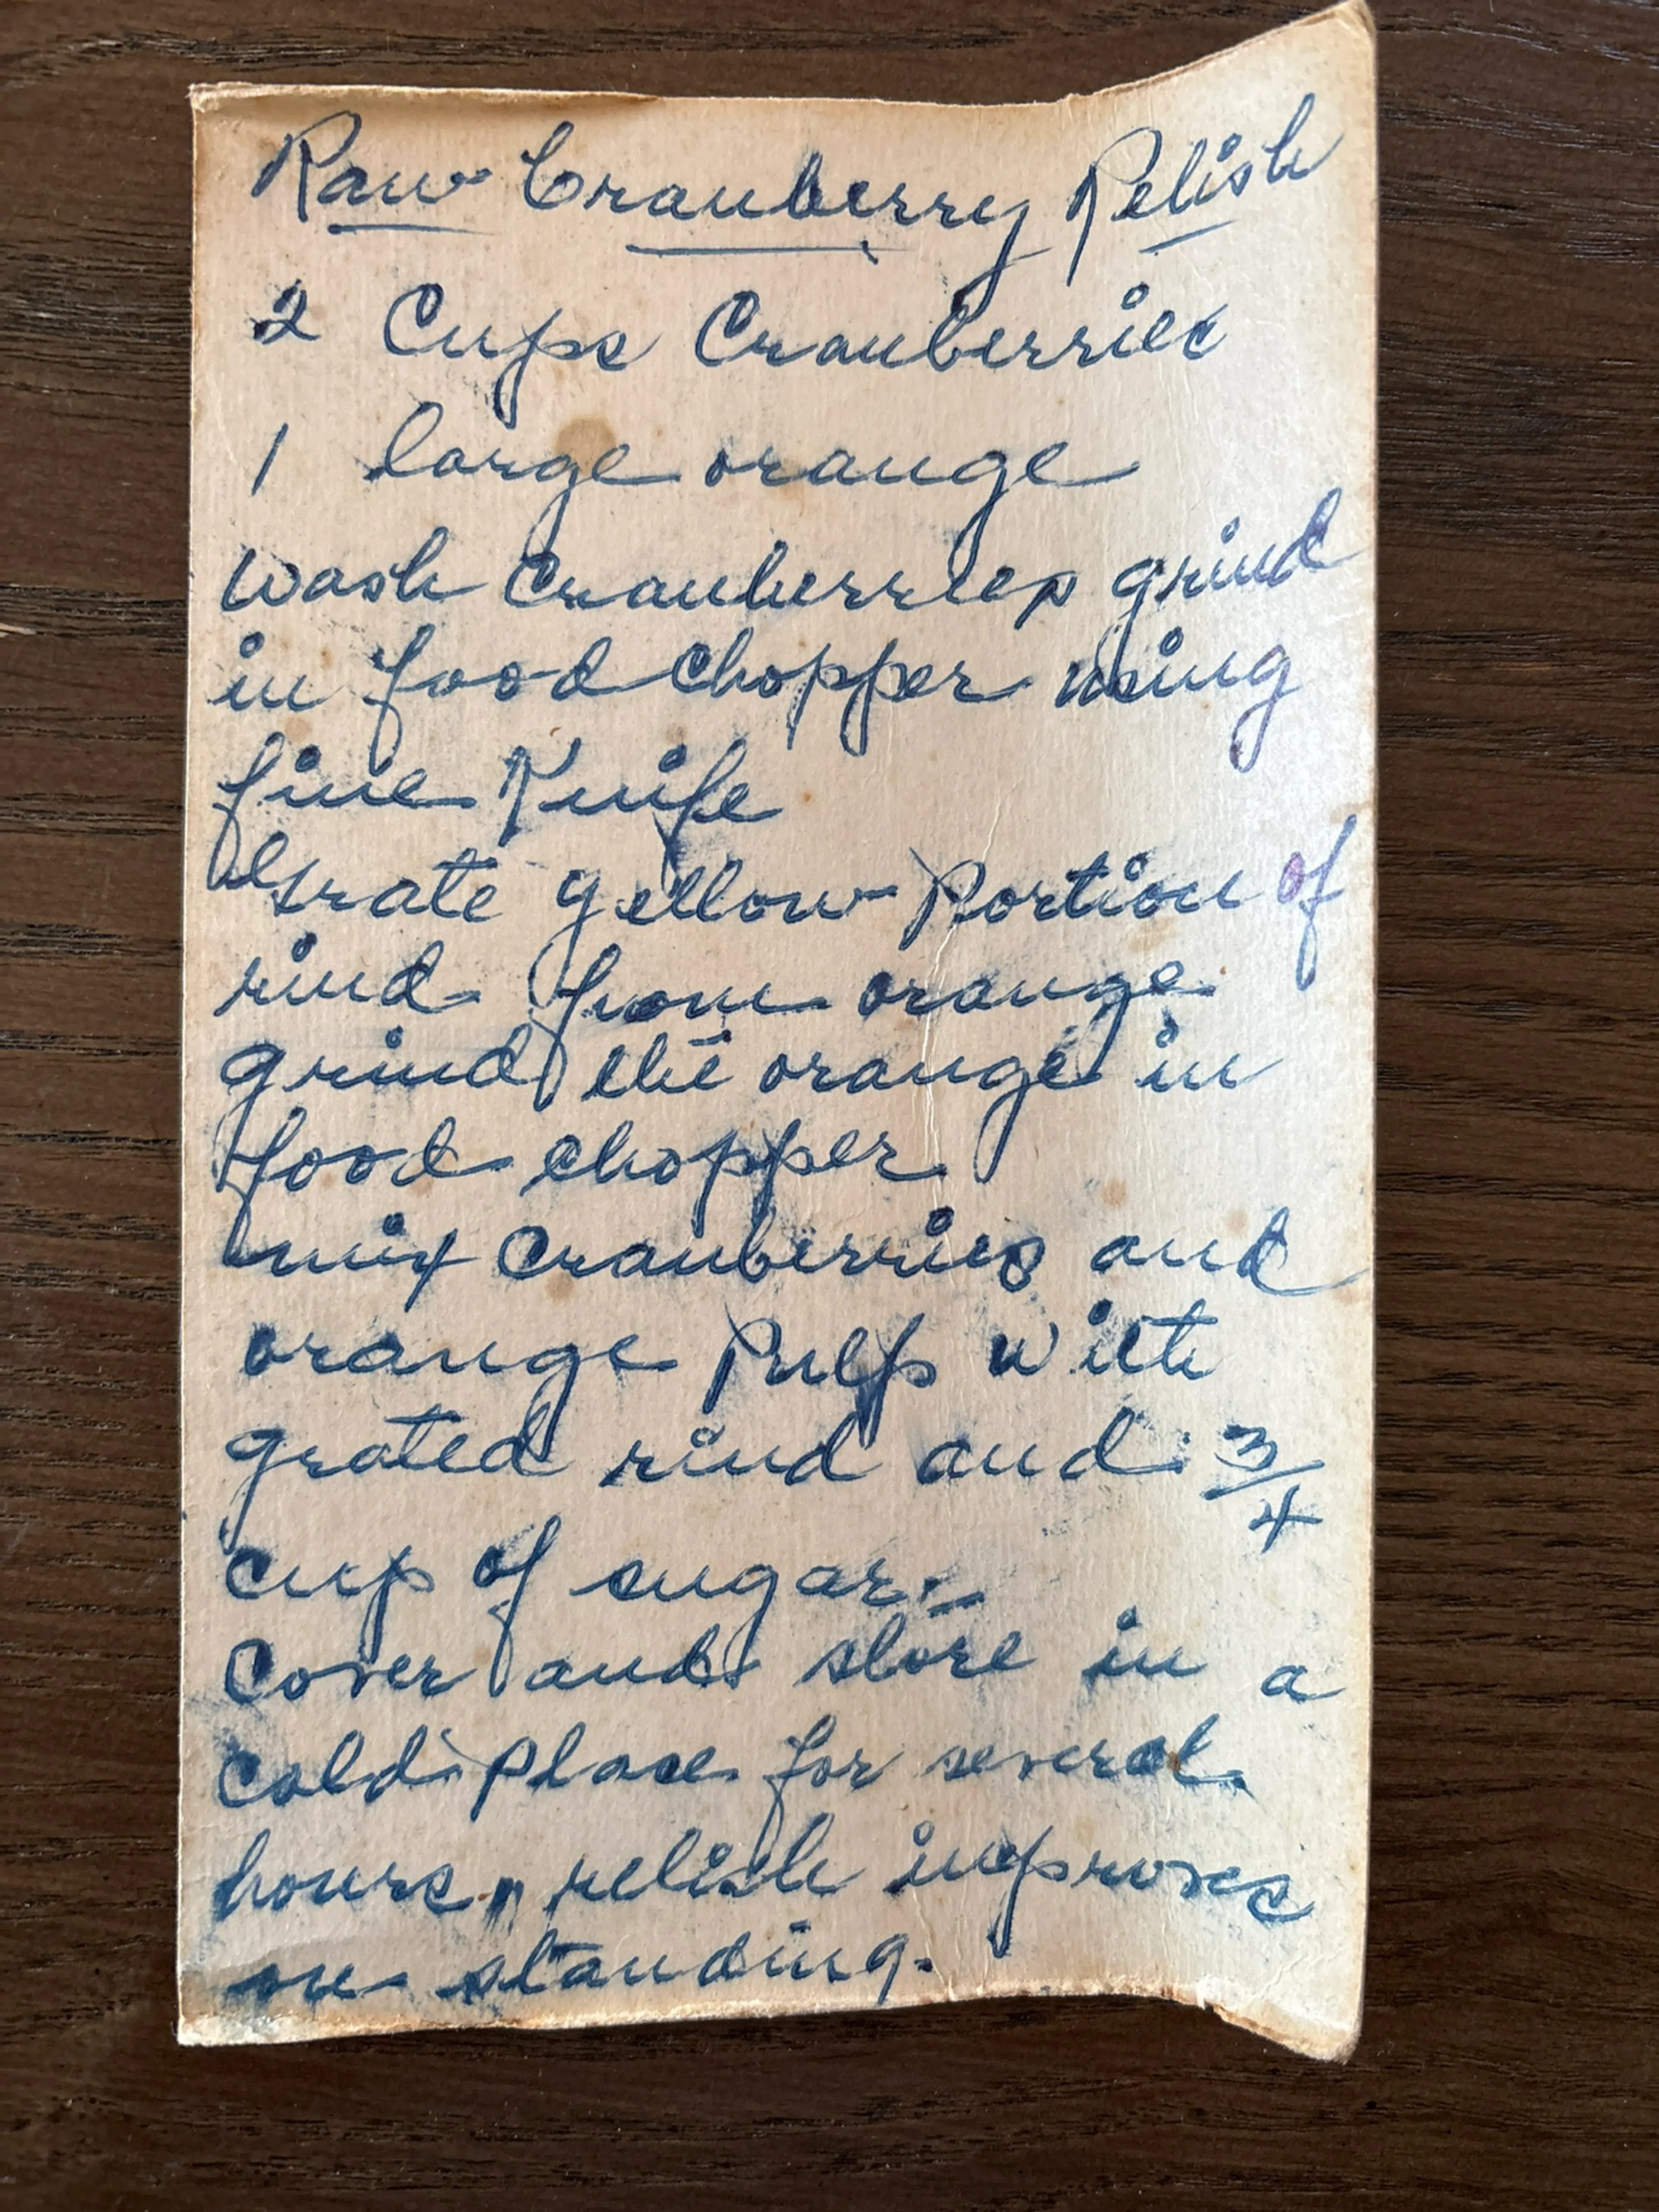 Raw Cranberry Relish
2 Cups Cranberries
1 large orange
Wash Cranberries grind
in food chopper using
fine Knife
Grate yellow Portion of
rind from orange
grind the orange in
food chopper
mix Cranberries and
orange Pulp with
grated rind and 3/4
cup of sugar.-
Cover and store in a
cold place for several
hours, relish improves
on standing.